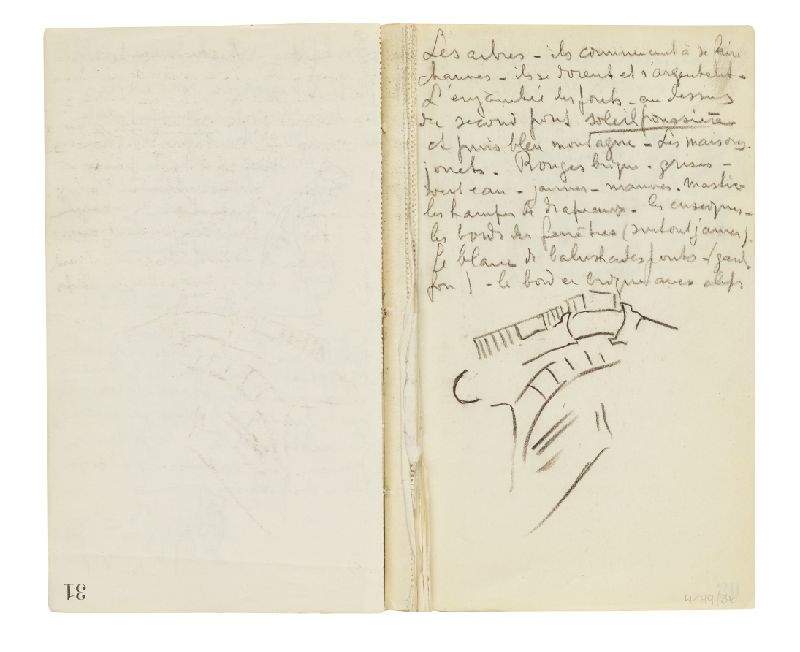 Les arbres - ils commencent à se faire
chauves - ils se dorent et s'argentent -
L' des ponts - au dessus
du second pont soleil poussière
et puis bleu montagne - Les maisons
jouets. Rouges brique - grises -
vert eau - jaunes - mauves. Mastic
les hampes de drapeaux - les enseignes -
les bords des fenêtres (surtout jaunes).
Le blanc de balustrades ponts
) - le bord en brique avec
31